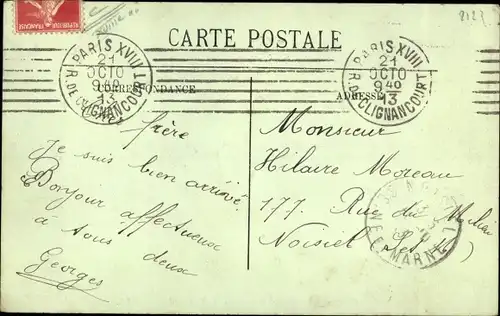 2123
CARTE POSTALE
PARIS XVIII
21
OCTO
9 40
13
R. DE CLIGNANCOURT
PARIS XVIII
21
OCTO
9 40
13
R. DE CLIGNANCOURT
CORRESPONDANCE
ADRESSE
frère
Je suis bien arrivé
Bonjour affectueux
à tous deux
Georges
Monsieur
Hilaire Moreau
177. Rue du
Noisiel Set M)
MARNE